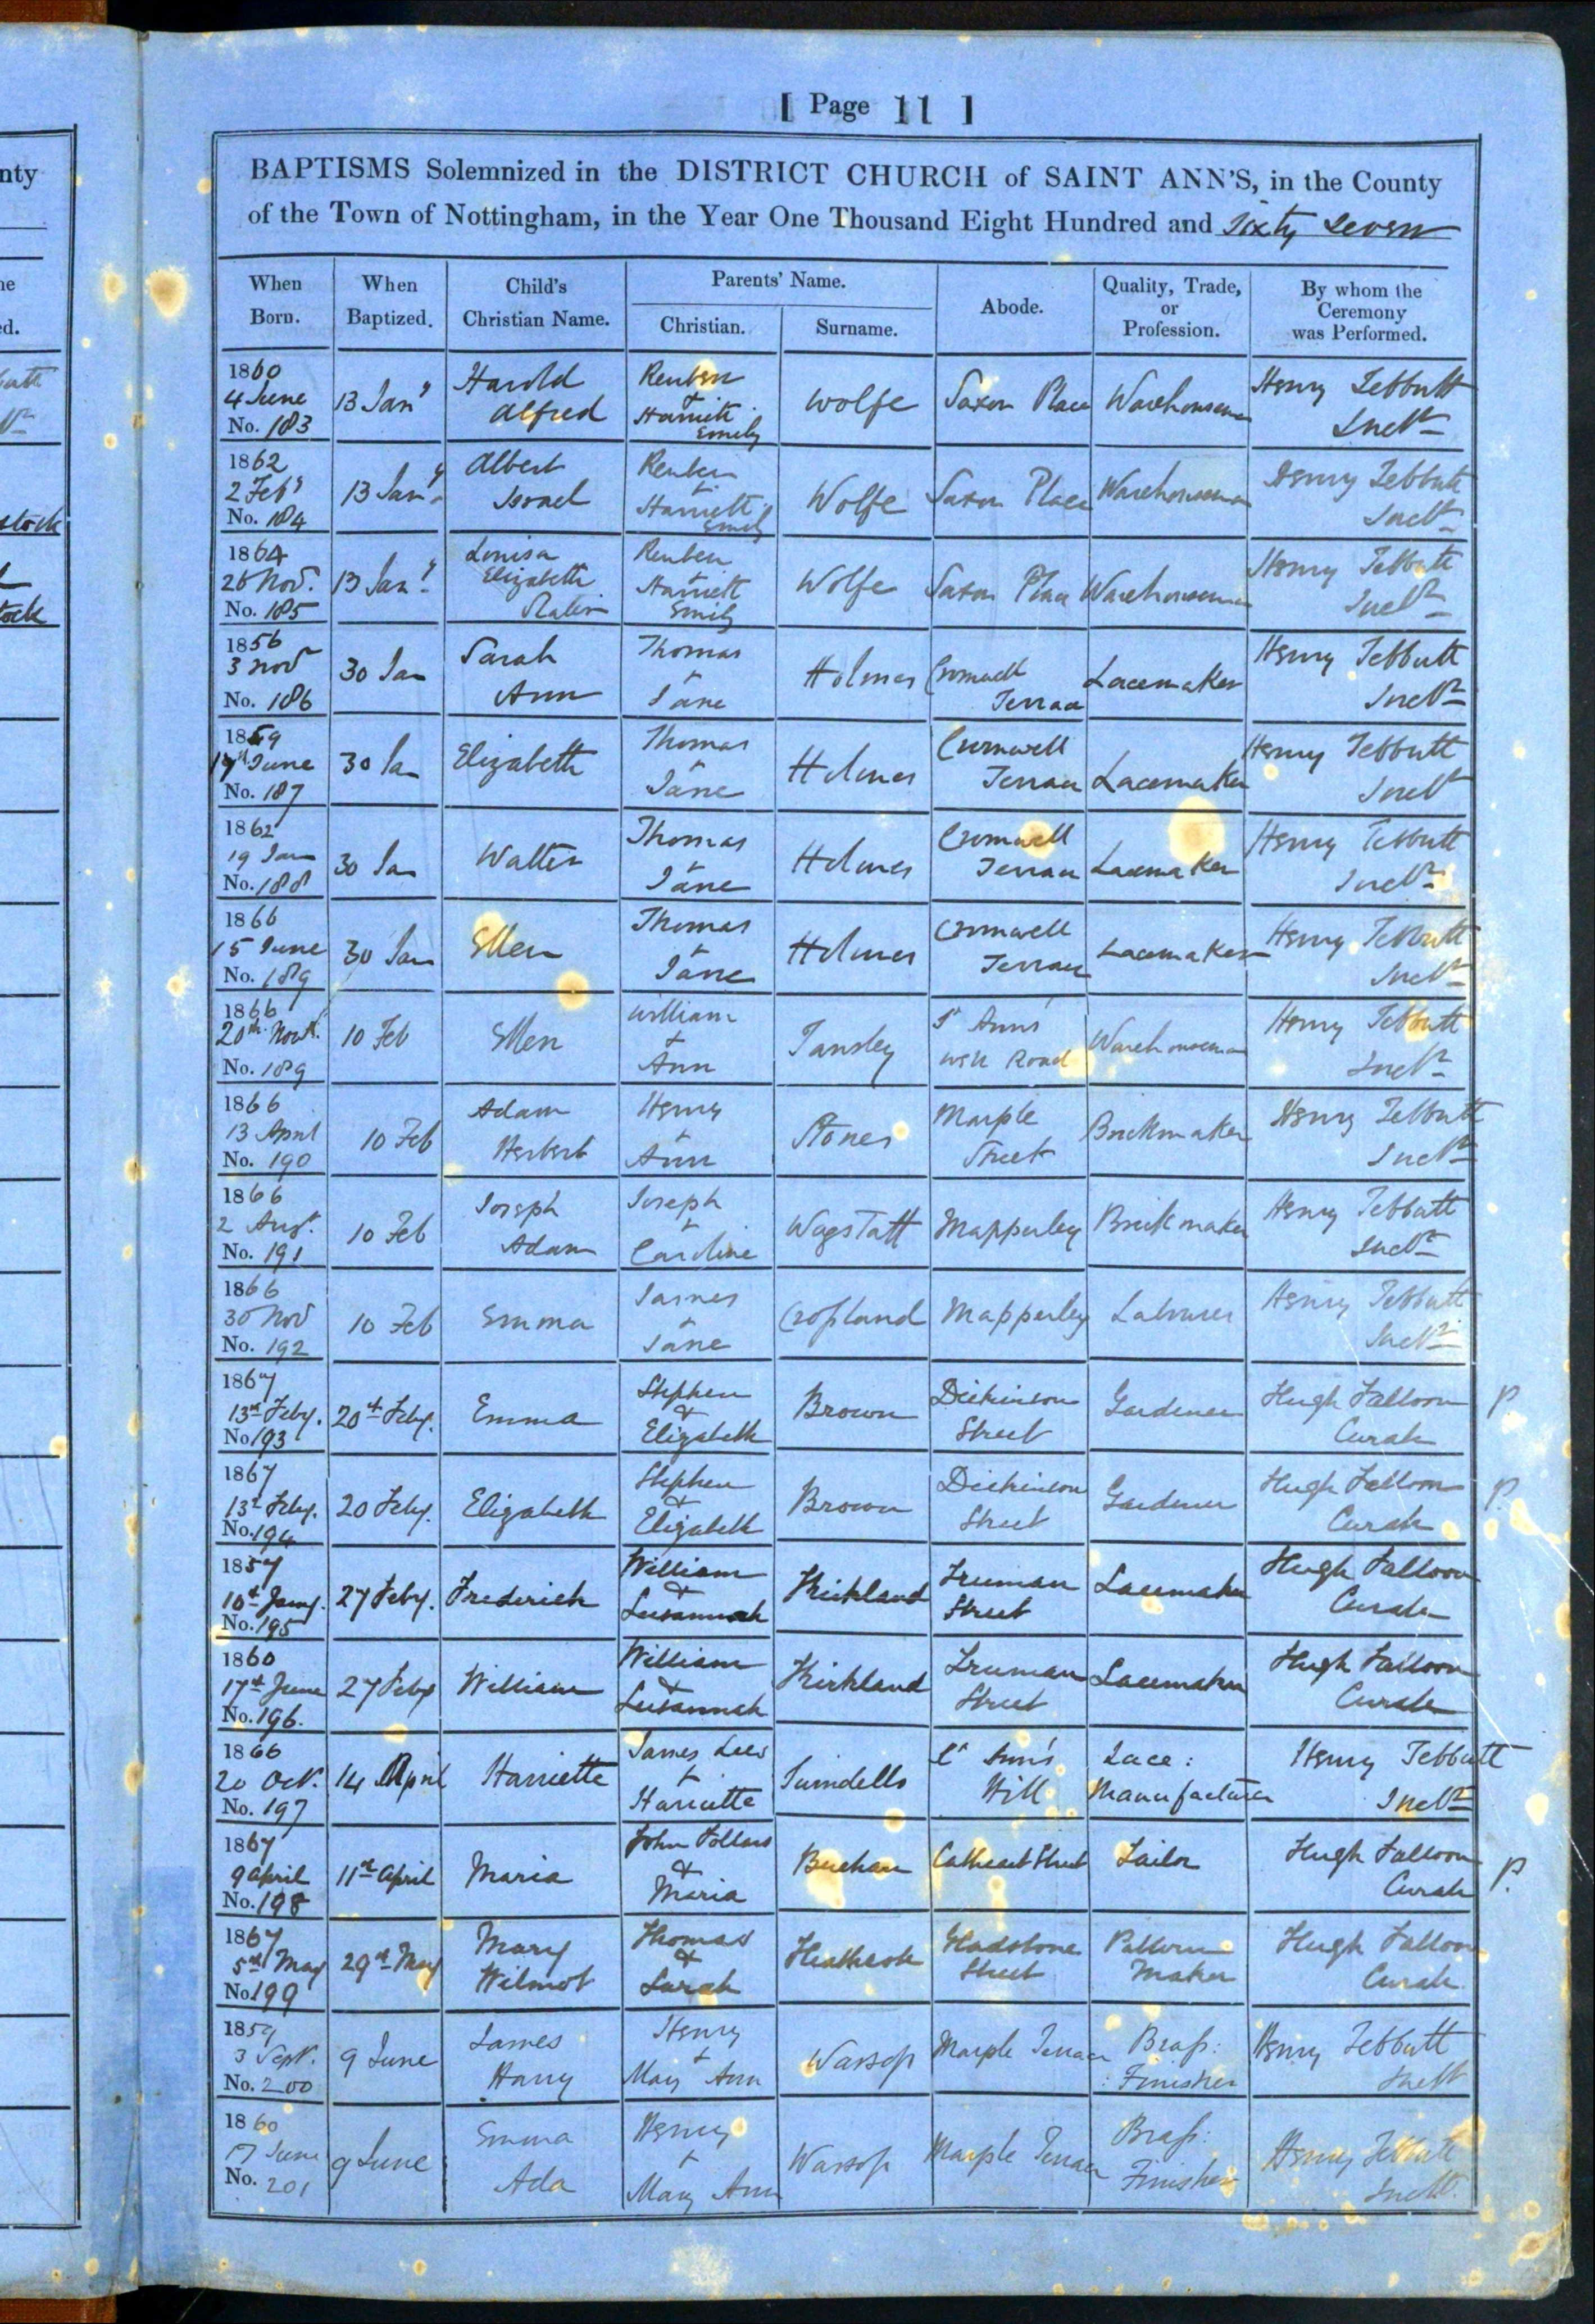 [ Page 11 ]
BAPTISMS Solemnized in the DISTRICT CHURCH of SAINT ANN'S, in the County
of the Town of Nottingham, in the Year One Thousand Eight Hundred and Sixty Seven
When Born. When Baptized. Child's Christian Name. Parents' Name. Christian. Surname. Abode. Quality, Trade, or Profession. By whom the Ceremony was Performed.
1860 4 June No. 183 13 Jany Harold Alfred Reuben + Harriett Emily Wolfe Saxon Place Warehouseman Henry Tebbutt Incbt
1862 2 Feby No. 184 13 Jany Albert Israel Reuben + Harriett Emily Wolfe Saxon Place Warehouseman Henry Tebbutt Incbt
1864 26 Nov. No. 185 13 Jany Louisa Elizabeth Reuben + Harriett Emily Wolfe Saxon Place Warehouseman Henry Tebbutt Incbt
1856 3 Nov No. 186 30 Jan Sarah Ann Thomas + Jane Holmes Cromwell Terrace Lacemaker Henry Tebbutt Incbt
1859 June No. 187 30 Jan Elizabeth Thomas + Jane Holmes Cromwell Terrace Lacemaker Henry Tebbutt Incbt
1862 19 Jan No. 188 30 Jan Walter Thomas + Jane Holmes Cromwell Terrace Lacemaker Henry Tebbutt Incbt
1866 15 June No. 189 30 Jan Ellen Thomas + Jane Holmes Cromwell Terrace Lacemaker Henry Tebbutt Incbt
1866 20th Novr. No. 189 10 Feb Ellen William + Ann Tansley St Ann's Well Road Warehouseman Henry Tebbutt Incbt
1866 13 April No. 190 10 Feb Adam Herbert Henry + Ann Stones Marple Street Brickmaker Henry Tebbutt Incbt
1866 2 Aug. No. 191 10 Feb Joseph Adam Joseph + Caroline Wagstaff Mapperley Brickmaker Henry Tebbutt Incbt
1866 30 Nov No. 192 10 Feb Emma James + Jane Cropland Mapperley Labourer Henry Tebbutt Incbt
1867 13th Feby. No. 193 20th Feby. Emma Stephen & Elizabeth Brown Dickinson Street Gardener Hugh Falloon Curate P.
1867 13th Feby. No. 194 20 Feby. Elizabeth Stephen & Elizabeth Brown Dickinson Street Gardener Hugh Falloon Curate P.
1857 10th Jany. No. 195 27 Feby. Frederick William & Susannah Kirkland Truman Street Lacemaker Hugh Falloon Curate
1860 17th June No. 196. 27 Feby William William & Susannah Kirkland Truman Street Lacemaker Hugh Falloon Curate
1866 20 Oct. No. 197 14 April Harriette James Lees + Harriette Swindells St Ann's Hill Lace: Manufacturer Henry Tebbutt Incbt
1867 9 April No. 198 11th April Maria John & Maria Buchan Cathcart Street Tailor Hugh Falloon Curate P.
1867 5th May No. 199 29th May Mary Wilmot Thomas & Sarah Heathcote Gladstone Street Pattern Maker Hugh Falloon Curate
1859 3 Sept. No. 200 9 June James Harry Henry + Mary Ann Warsop Marple Terrace Brass: Finisher Henry Tebbutt Incbt
1860 17 June No. 201 9 June Emma Ada Henry + Mary Ann Warsop Marple Terrace Brass: Finisher Henry Tebbutt Incbt.